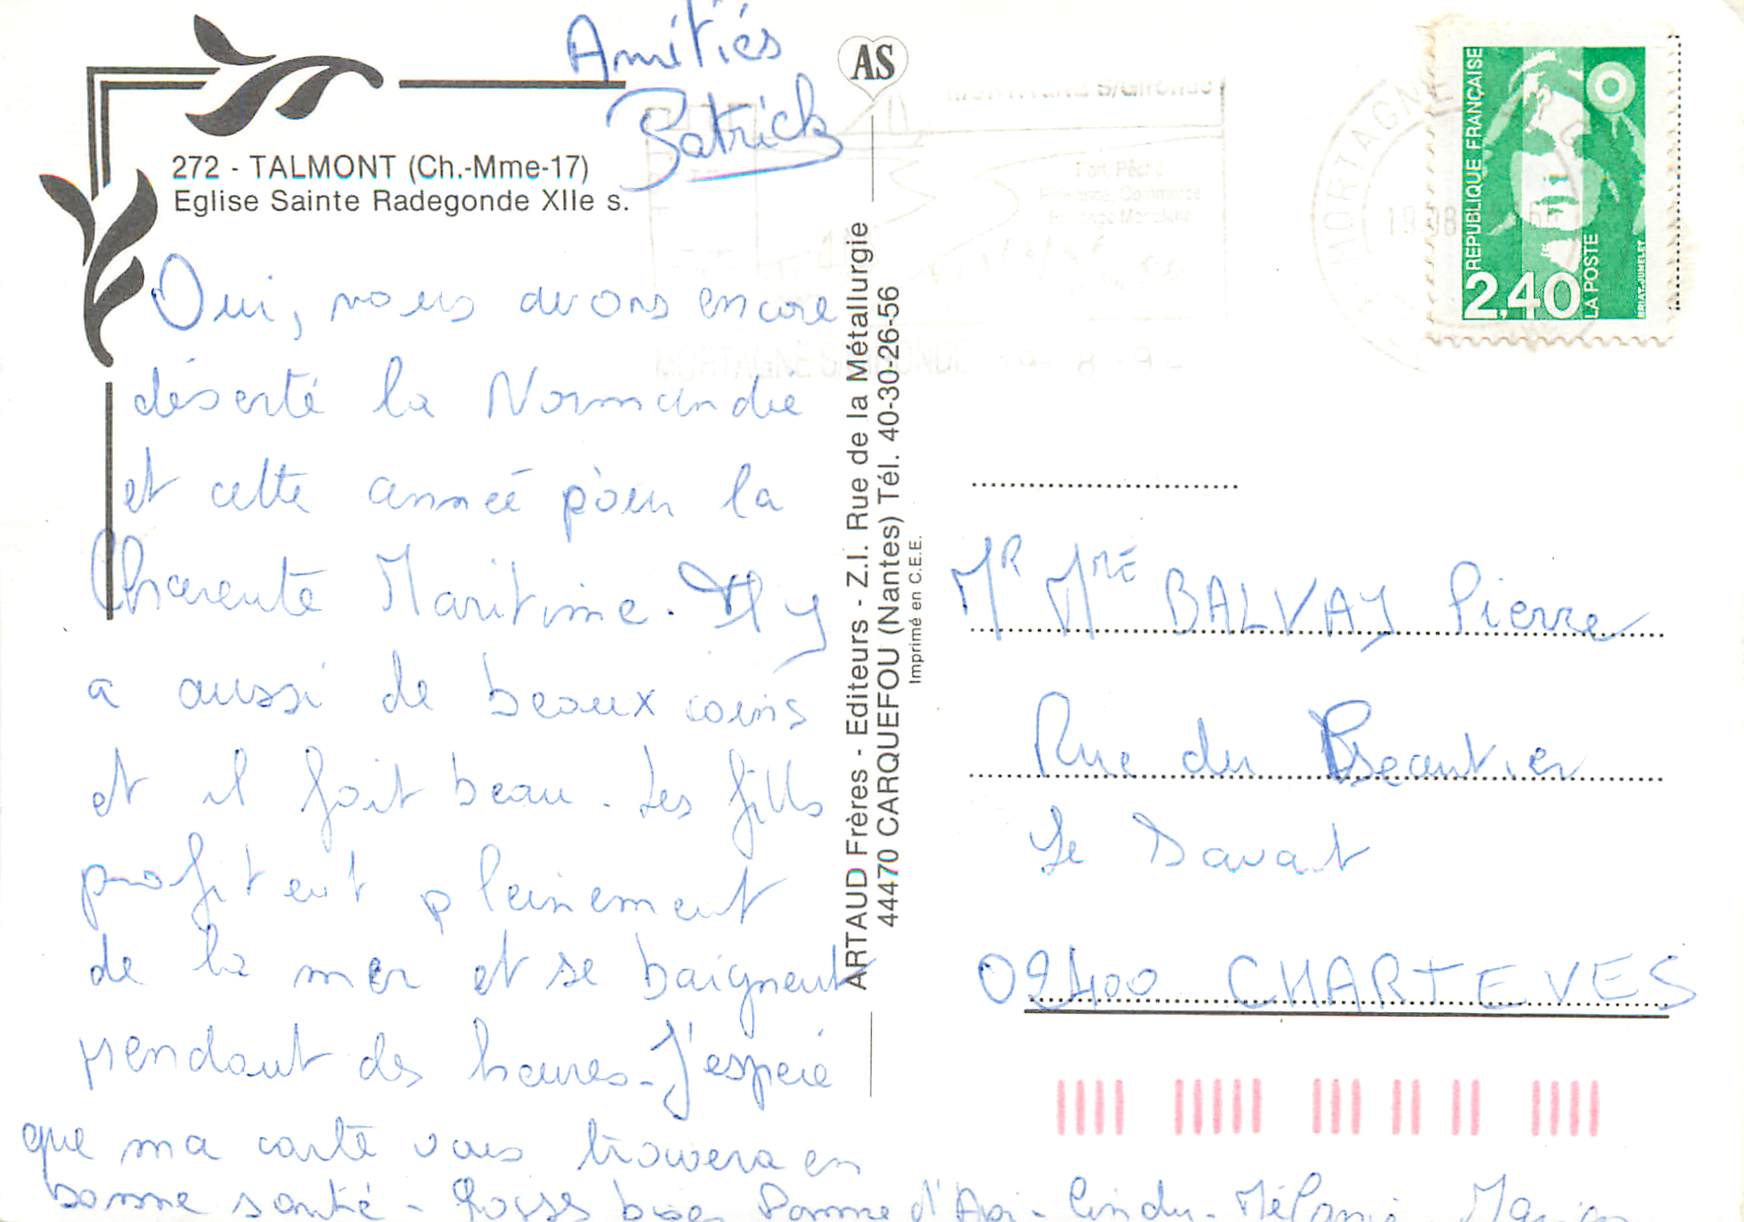 Amitiés
Patrick
272 - TALMONT (Ch.-Mme-17)
Eglise Sainte Radegonde XIIe s.
Oui, nous avons encore
déserté la Normandie
et cette année pour la
Charente Maritime. Il y
a aussi de beaux coins
et il fait beau. Les filles
profitent pleinement
de la mer et se baignent
pendant des heures. J'espère
que ma carte vous trouvera en
bonne santé - Grosses bises Pomme d'Api - Cindy - Mélanie
AS
ARTAUD Frères - Editeurs - Z.I. Rue de la Métallurgie
44470 CARQUEFOU (Nantes) Tél. 40-30-26-56
Imprimé en C.E.E.
REPUBLIQUE FRANÇAISE
2,40
LA POSTE
BRIAT-JUMELET
MORTAGNE
S/Gironde
Port, Pêche
Mr Mme BALVAY Pierre
Rue du
Le
02400 CHARTEVES